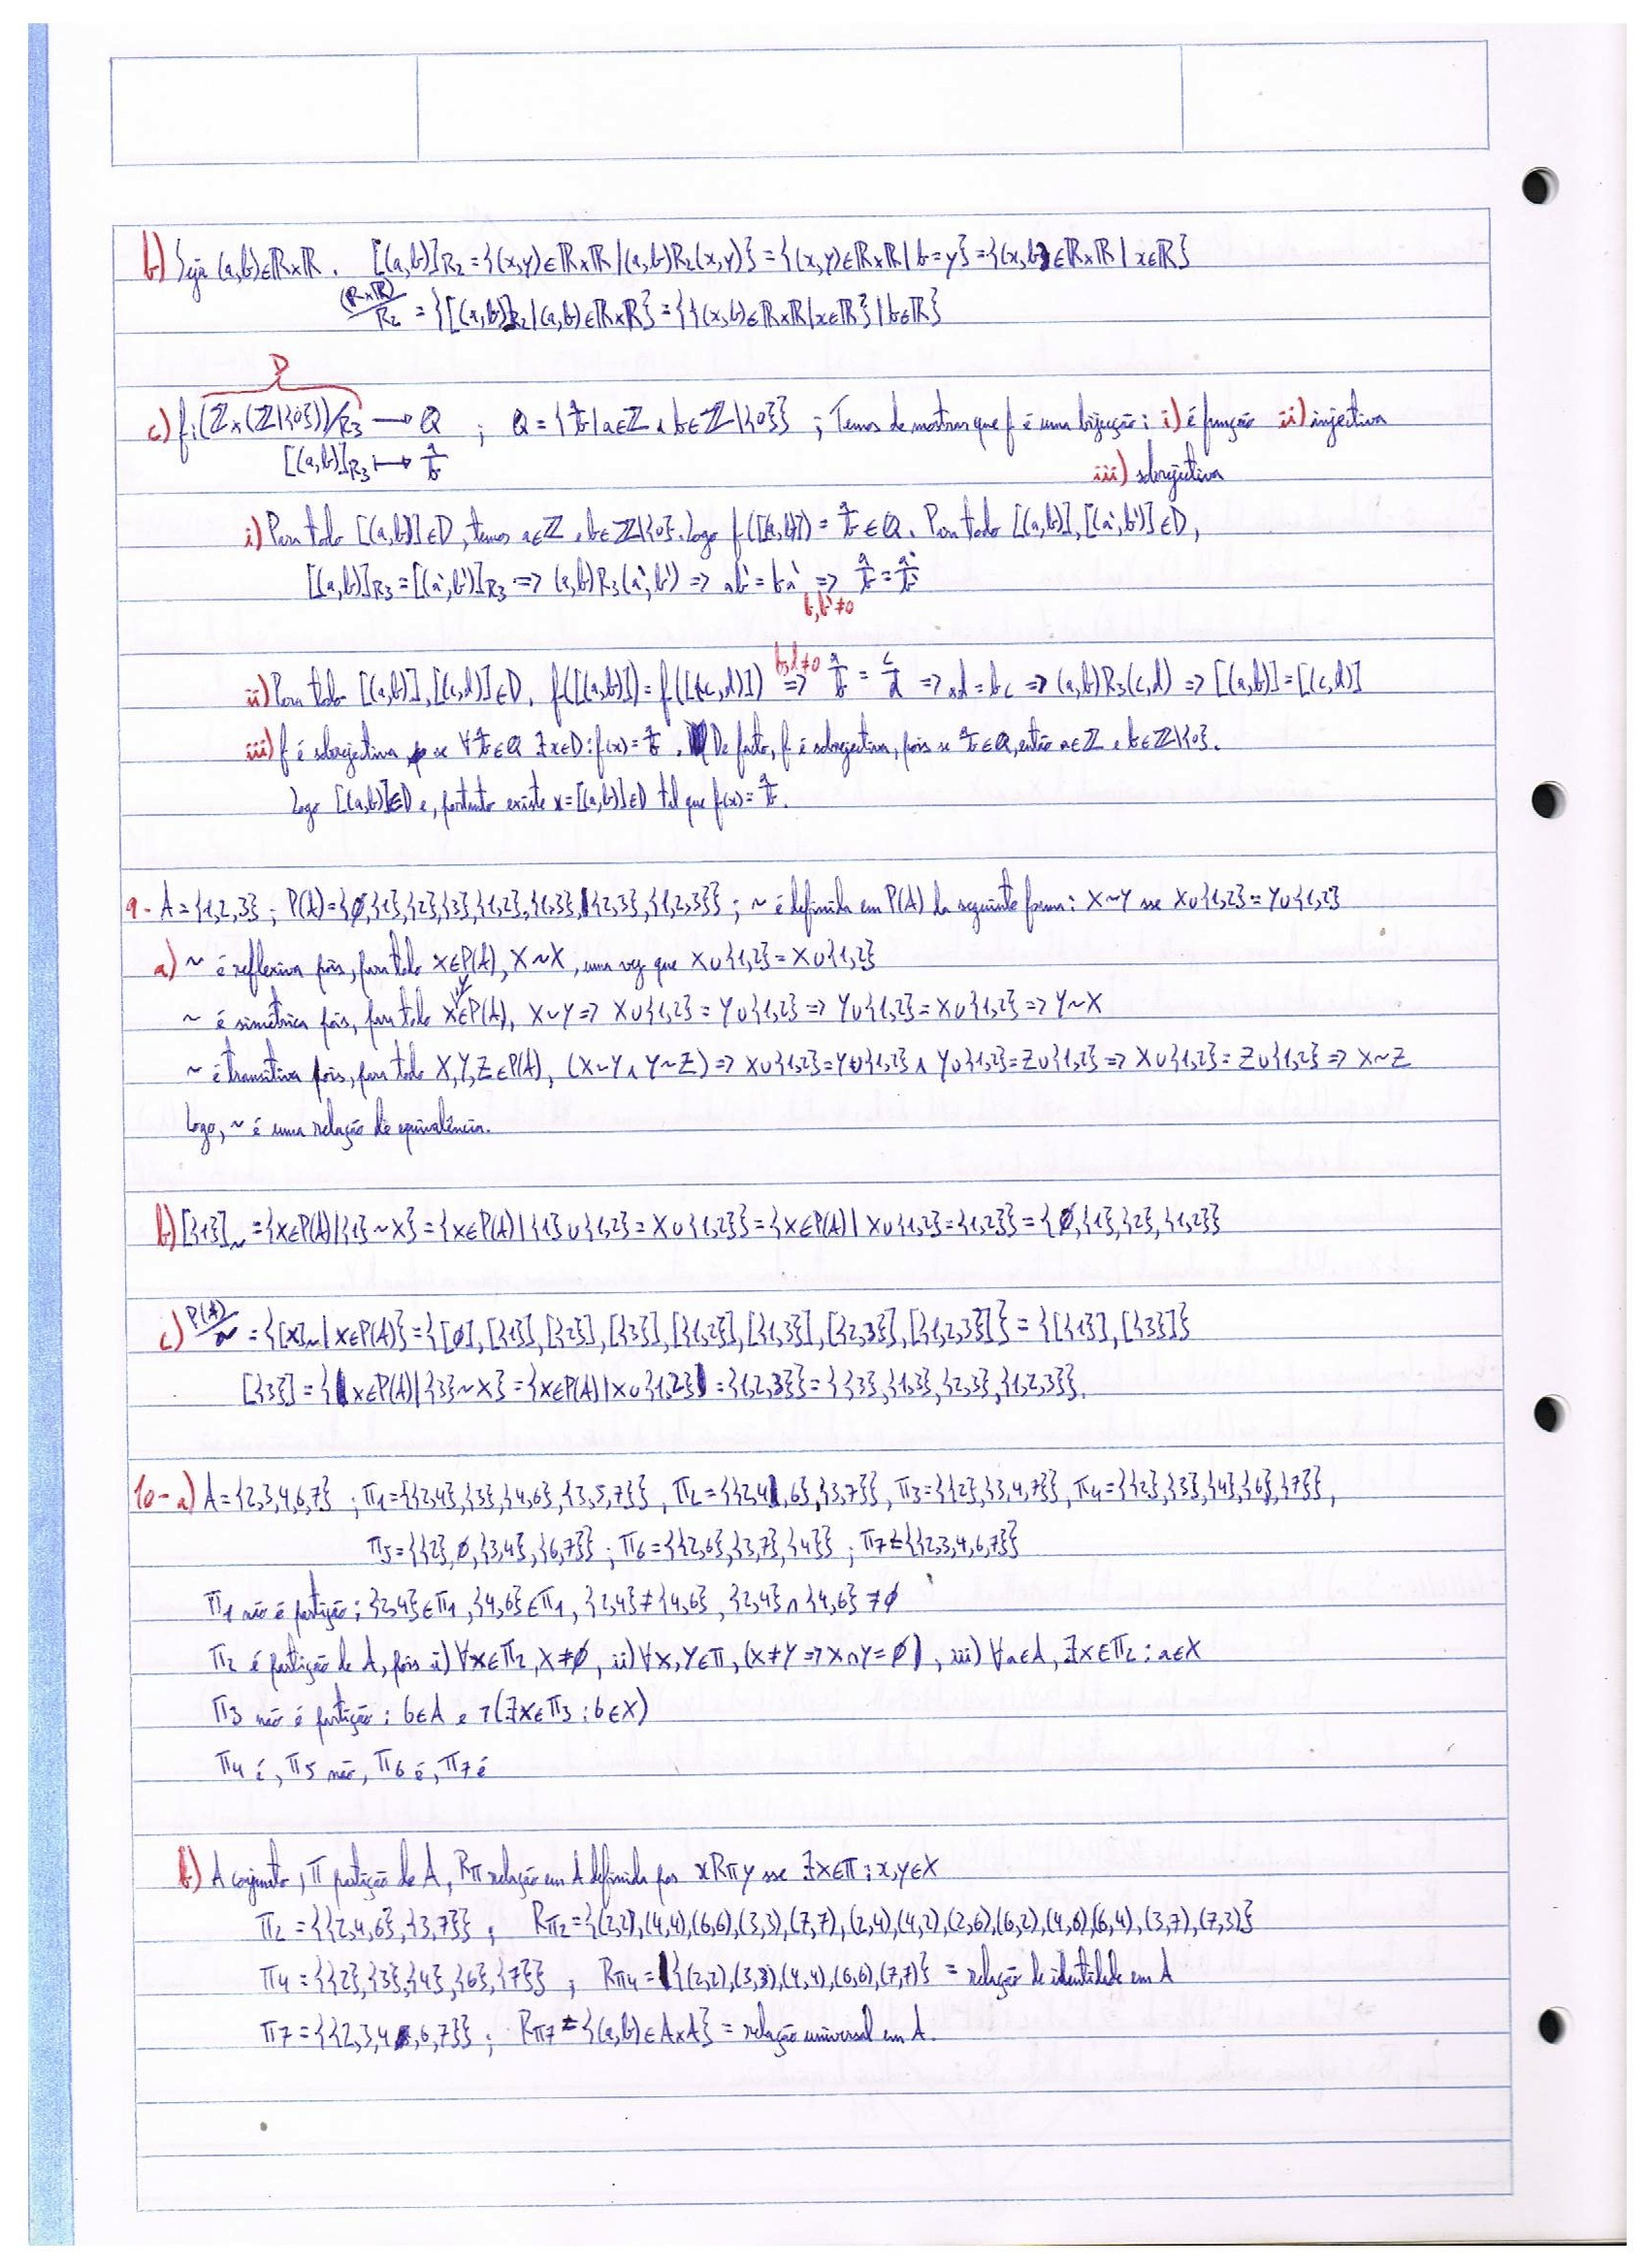 b) Seja (a,b)∈ℝ×ℝ. [(a,b)]R₂ = {(x,y)∈ℝ×ℝ | (a,b)R₂(x,y)} = {(x,y)∈ℝ×ℝ | b=y} = {(x,b)∈ℝ×ℝ | x∈ℝ}
(ℝ×ℝ)/R₂ = {[(a,b)]R₂ | (a,b)∈ℝ×ℝ} = {{(x,b)∈ℝ×ℝ | x∈ℝ} | b∈ℝ}
D
c) f: (ℤ×(ℤ\{0}))/R₃ → ℚ ; ℚ = {a/b | a∈ℤ ∧ b∈ℤ\{0}} ; Temos de mostrar que f é uma bijeção: i) é função ii) injectiva
[(a,b)]R₃ ↦ a/b iii) sobrejectiva
i) Para todo [(a,b)]∈D, temos a∈ℤ e b∈ℤ\{0}. Logo f([(a,b)]) = a/b ∈ ℚ. Para todo [(a,b)], [(a',b')]∈D,
[(a,b)]R₃ = [(a',b')]R₃ => (a,b)R₃(a',b') => ab' = ba' => a/b = a'/b'
b,b'≠0
ii) Para todo [(a,b)], [(c,d)]∈D. f([(a,b)]) = f([(c,d)]) =>(b,d≠0) a/b = c/d => ad = bc => (a,b)R₃(c,d) => [(a,b)] = [(c,d)]
iii) f é sobrejectiva se ∀a/b∈ℚ ∃x∈D: f(x) = a/b. De facto, f é sobrejectiva, pois se a/b∈ℚ, então a∈ℤ e b∈ℤ\{0}.
Logo [(a,b)]∈D e, portanto existe x=[(a,b)]∈D tal que f(x) = a/b.
9- A={1,2,3} ; P(A)={∅,{1},{2},{3},{1,2},{1,3},{2,3},{1,2,3}} ; ~ é definida em P(A) da seguinte forma: X~Y sse X∪{1,2} = Y∪{1,2}
a) ~ é reflexiva pois, para todo X∈P(A), X~X, uma vez que X∪{1,2} = X∪{1,2}
~ é simétrica pois, para todo X,Y∈P(A), X~Y => X∪{1,2} = Y∪{1,2} => Y∪{1,2} = X∪{1,2} => Y~X
~ é transitiva pois, para todo X,Y,Z∈P(A), (X~Y ∧ Y~Z) => X∪{1,2}=Y∪{1,2} ∧ Y∪{1,2}=Z∪{1,2} => X∪{1,2} = Z∪{1,2} => X~Z
Logo, ~ é uma relação de equivalência.
b) [{1}]~ = {X∈P(A) | {1}~X} = {X∈P(A) | {1}∪{1,2} = X∪{1,2}} = {X∈P(A) | X∪{1,2} = {1,2}} = {∅,{1},{2},{1,2}}
c) P(A)/~ = {[X]~ | X∈P(A)} = {[∅],[{1}],[{2}],[{3}],[{1,2}],[{1,3}],[{2,3}],[{1,2,3}]} = {[{1}],[{3}]}
[{3}] = {X∈P(A) | {3}~X} = {X∈P(A) | X∪{1,2} = {1,2,3}} = {{3},{1,3},{2,3},{1,2,3}}.
10-a) A={2,3,4,6,7} ; Π1={{2,4},{3},{4,6},{3,5,7}}, Π2={{2,4,6},{3,7}}, Π3={{2},{3,4,7}}, Π4={{2},{3},{4},{6},{7}},
Π5={{2},∅,{3,4},{6,7}} ; Π6={{2,6},{3,7},{4}} ; Π7={{2,3,4,6,7}}
Π1 não é partição; {2,4}∈Π1, {4,6}∈Π1, {2,4}≠{4,6}, {2,4}∩{4,6}≠∅
Π2 é partição de A, pois i) ∀X∈Π2, X≠∅, ii) ∀X,Y∈Π, (X≠Y => X∩Y=∅), iii) ∀a∈A, ∃X∈Π2: a∈X
Π3 não é partição: 6∈A e ¬(∃X∈Π3: 6∈X)
Π4 é, Π5 não, Π6 é, Π7 é
b) A conjunto, Π partição de A, RΠ relação em A definida por xRΠy sse ∃X∈Π: x,y∈X
Π2={{2,4,6},{3,7}} ; RΠ2={(2,2),(4,4),(6,6),(3,3),(7,7),(2,4),(4,2),(2,6),(6,2),(4,6),(6,4),(3,7),(7,3)}
Π4={{2},{3},{4},{6},{7}} ; RΠ4={(2,2),(3,3),(4,4),(6,6),(7,7)} = relação de identidade em A
Π7={{2,3,4,6,7}} ; RΠ7={(a,b)∈A×A} = relação universal em A.